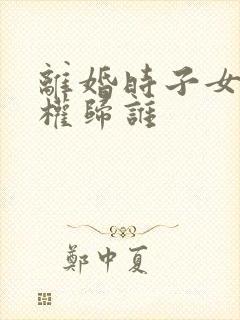 離婚時子女
權歸誰
鄭中夏